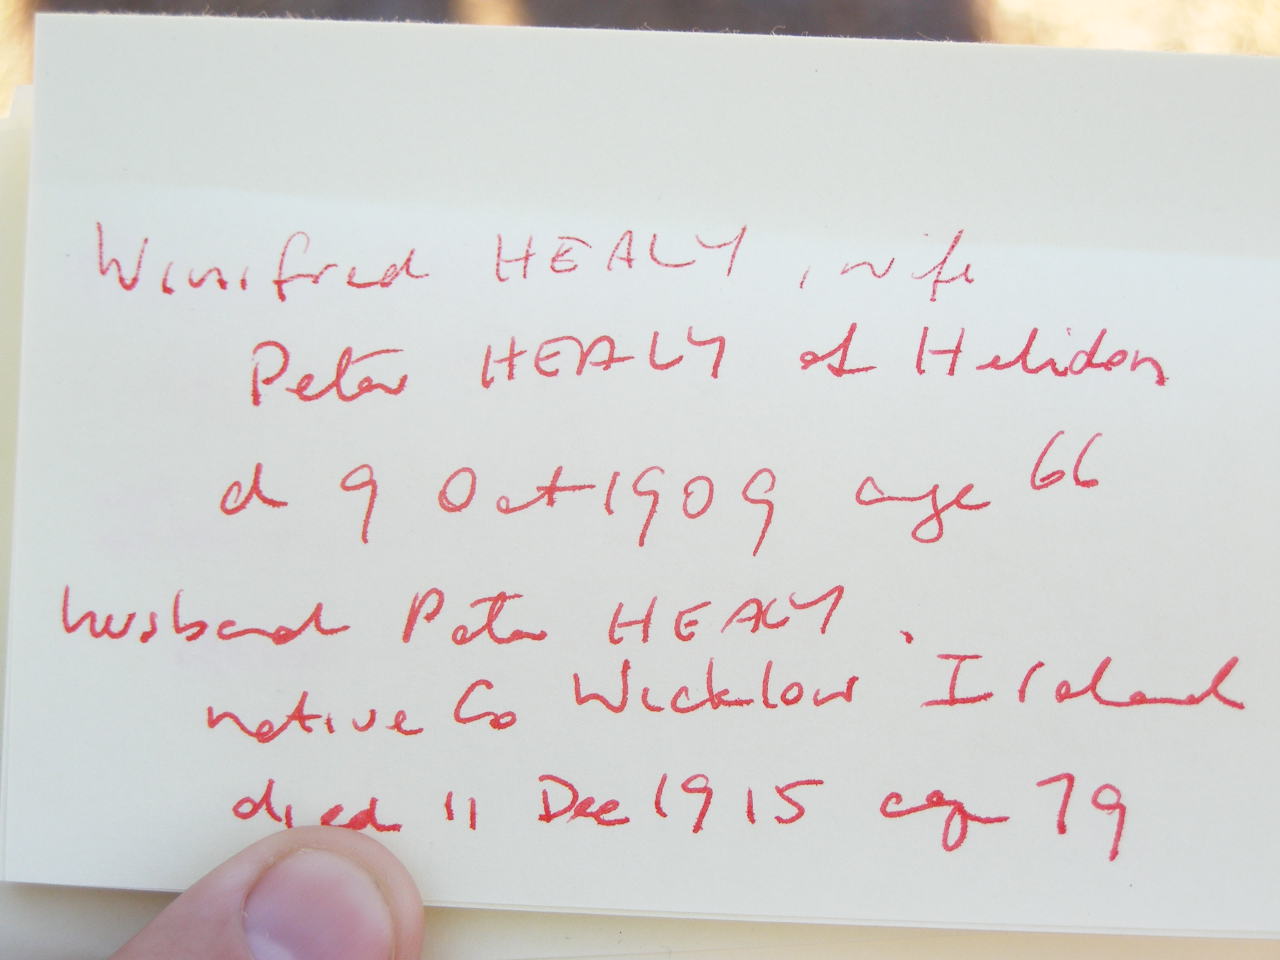 Winifred HEALY, wife
Peter HEALY of Helidon
d 9 Oct 1909 age 66
husband Peter HEALY.
native Co Wicklow Ireland
died 11 Dec 1915 age 79